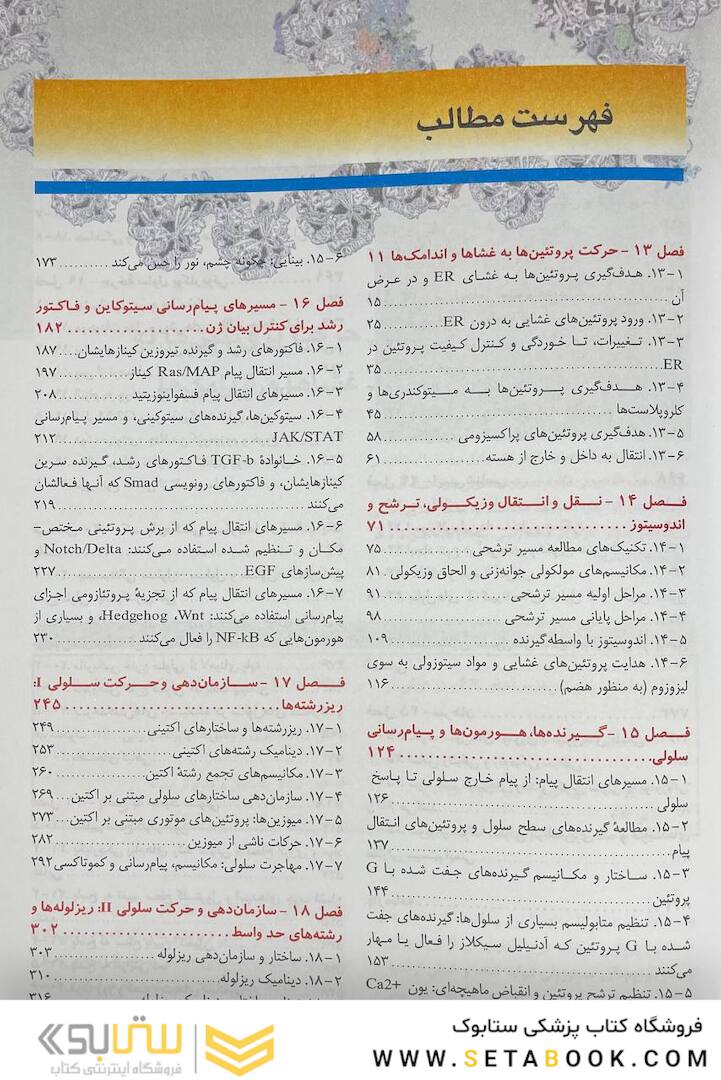 فهرست مطالب
فصل ۱۳ - حرکت پروتئین‌ها به غشاها و اندامک‌ها ۱۱
۱۳-۱. هدف‌گیری پروتئین‌ها به غشای ER و در عرض
آن ................ ۱۵
۱۳-۲. ورود پروتئین‌های غشایی به درون ER ............ ۲۵
۱۳-۳. تغییرات، تا خوردگی و کنترل کیفیت پروتئین در
ER ................ ۳۵
۱۳-۴. هدف‌گیری پروتئین‌ها به میتوکندری‌ها و
کلروپلاست‌ها ................ ۴۵
۱۳-۵. هدف‌گیری پروتئین‌های پراکسیزومی ............ ۵۸
۱۳-۶. انتقال به داخل و خارج از هسته ................ ۶۱
فصل ۱۴ - نقل و انتقال وزیکولی، ترشح و
اندوسیتوز ................ ۷۱
۱۴-۱. تکنیک‌های مطالعه مسیر ترشحی ............ ۷۵
۱۴-۲. مکانیسم‌های مولکولی جوانه‌زنی و الحاق وزیکولی . ۸۱
۱۴-۳. مراحل اولیه مسیر ترشحی ................ ۹۱
۱۴-۴. مراحل پایانی مسیر ترشحی ................ ۹۸
۱۴-۵. اندوسیتوز با واسطه‌گیرنده ................ ۱۰۹
۱۴-۶. هدایت پروتئین‌های غشایی و مواد سیتوزولی به سوی
لیزوزوم (به منظور هضم) ................ ۱۱۶
فصل ۱۵ - گیرنده‌ها، هورمون‌ها و پیام‌رسانی
سلولی ................ ۱۲۴
۱۵-۱. مسیرهای انتقال پیام: از پیام خارج سلولی تا پاسخ
سلولی ................ ۱۲۶
۱۵-۲. مطالعهٔ گیرنده‌های سطح سلول و پروتئین‌های انتقال
پیام ................ ۱۳۷
۱۵-۳. ساختار و مکانیسم گیرنده‌های جفت شده با G
پروتئین ................ ۱۴۴
۱۵-۴. تنظیم متابولیسم بسیاری از سلول‌ها: گیرنده‌های جفت
شده با G پروتئین که آدنیلیل سیکلاز را فعال یا مهار
می‌کنند ................ ۱۵۳
۱۵-۵. تنظیم ترشح پروتئین و انقباض ماهیچه‌ای: یون Ca2+
۱۵-۶. بینایی: چگونه چشم، نور را حس می‌کند ............ ۱۷۳
فصل ۱۶ - مسیرهای پیام‌رسانی سیتوکاین و فاکتور
رشد برای کنترل بیان ژن ................ ۱۸۲
۱۶-۱. فاکتورهای رشد و گیرنده تیروزین کینازهایشان ... ۱۸۷
۱۶-۲. مسیر انتقال پیام Ras/MAP کیناز ............ ۱۹۷
۱۶-۳. مسیرهای انتقال پیام فسفواینوزیتید ............ ۲۰۸
۱۶-۴. سیتوکین‌ها، گیرنده‌های سیتوکینی، و مسیر پیام‌رسانی
JAK/STAT ................ ۲۱۲
۱۶-۵. خانوادهٔ TGF-b فاکتورهای رشد، گیرنده سرین
کینازهایشان، و فاکتورهای رونویسی Smad که آنها فعالشان
می‌کنند ................ ۲۱۹
۱۶-۶. مسیرهای انتقال پیام که از برش پروتئینی مختص-
مکان و تنظیم شده استفاده می‌کنند: Notch/Delta و
پیش‌سازهای EGF ................ ۲۲۷
۱۶-۷. مسیرهای انتقال پیام که از تجزیهٔ پروتئازومی اجزای
پیام‌رسانی استفاده می‌کنند: Hedgehog ،Wnt، و بسیاری از
هورمون‌هایی که NF-kB را فعال می‌کنند ............ ۲۳۰
فصل ۱۷ - سازمان‌دهی و حرکت سلولی I:
ریزرشته‌ها ................ ۲۴۵
۱۷-۱. ریزرشته‌ها و ساختارهای اکتینی ............ ۲۴۹
۱۷-۲. دینامیک رشته‌های اکتینی ................ ۲۵۳
۱۷-۳. مکانیسم‌های تجمع رشتهٔ اکتین ............ ۲۶۰
۱۷-۴. سازمان‌دهی ساختارهای سلولی مبتنی بر اکتین .... ۲۶۹
۱۷-۵. میوزین‌ها: پروتئین‌های موتوری مبتنی بر اکتین ... ۲۷۳
۱۷-۶. حرکات ناشی از میوزین ................ ۲۸۲
۱۷-۷. مهاجرت سلولی: مکانیسم، پیام‌رسانی و کموتاکسی ۲۹۲
فصل ۱۸ - سازمان‌دهی و حرکت سلولی II: ریزلوله‌ها و
رشته‌های حد واسط ................ ۳۰۲
۱۸-۱. ساختار و سازمان‌دهی ریزلوله ............ ۳۰۳
۱۸-۲. دینامیک ریزلوله ................ ۳۱۰
فروشگاه کتاب پزشکی ستابوک
WWW.SETABOOK.COM
ستابوک
فروشگاه اینترنتی کتاب